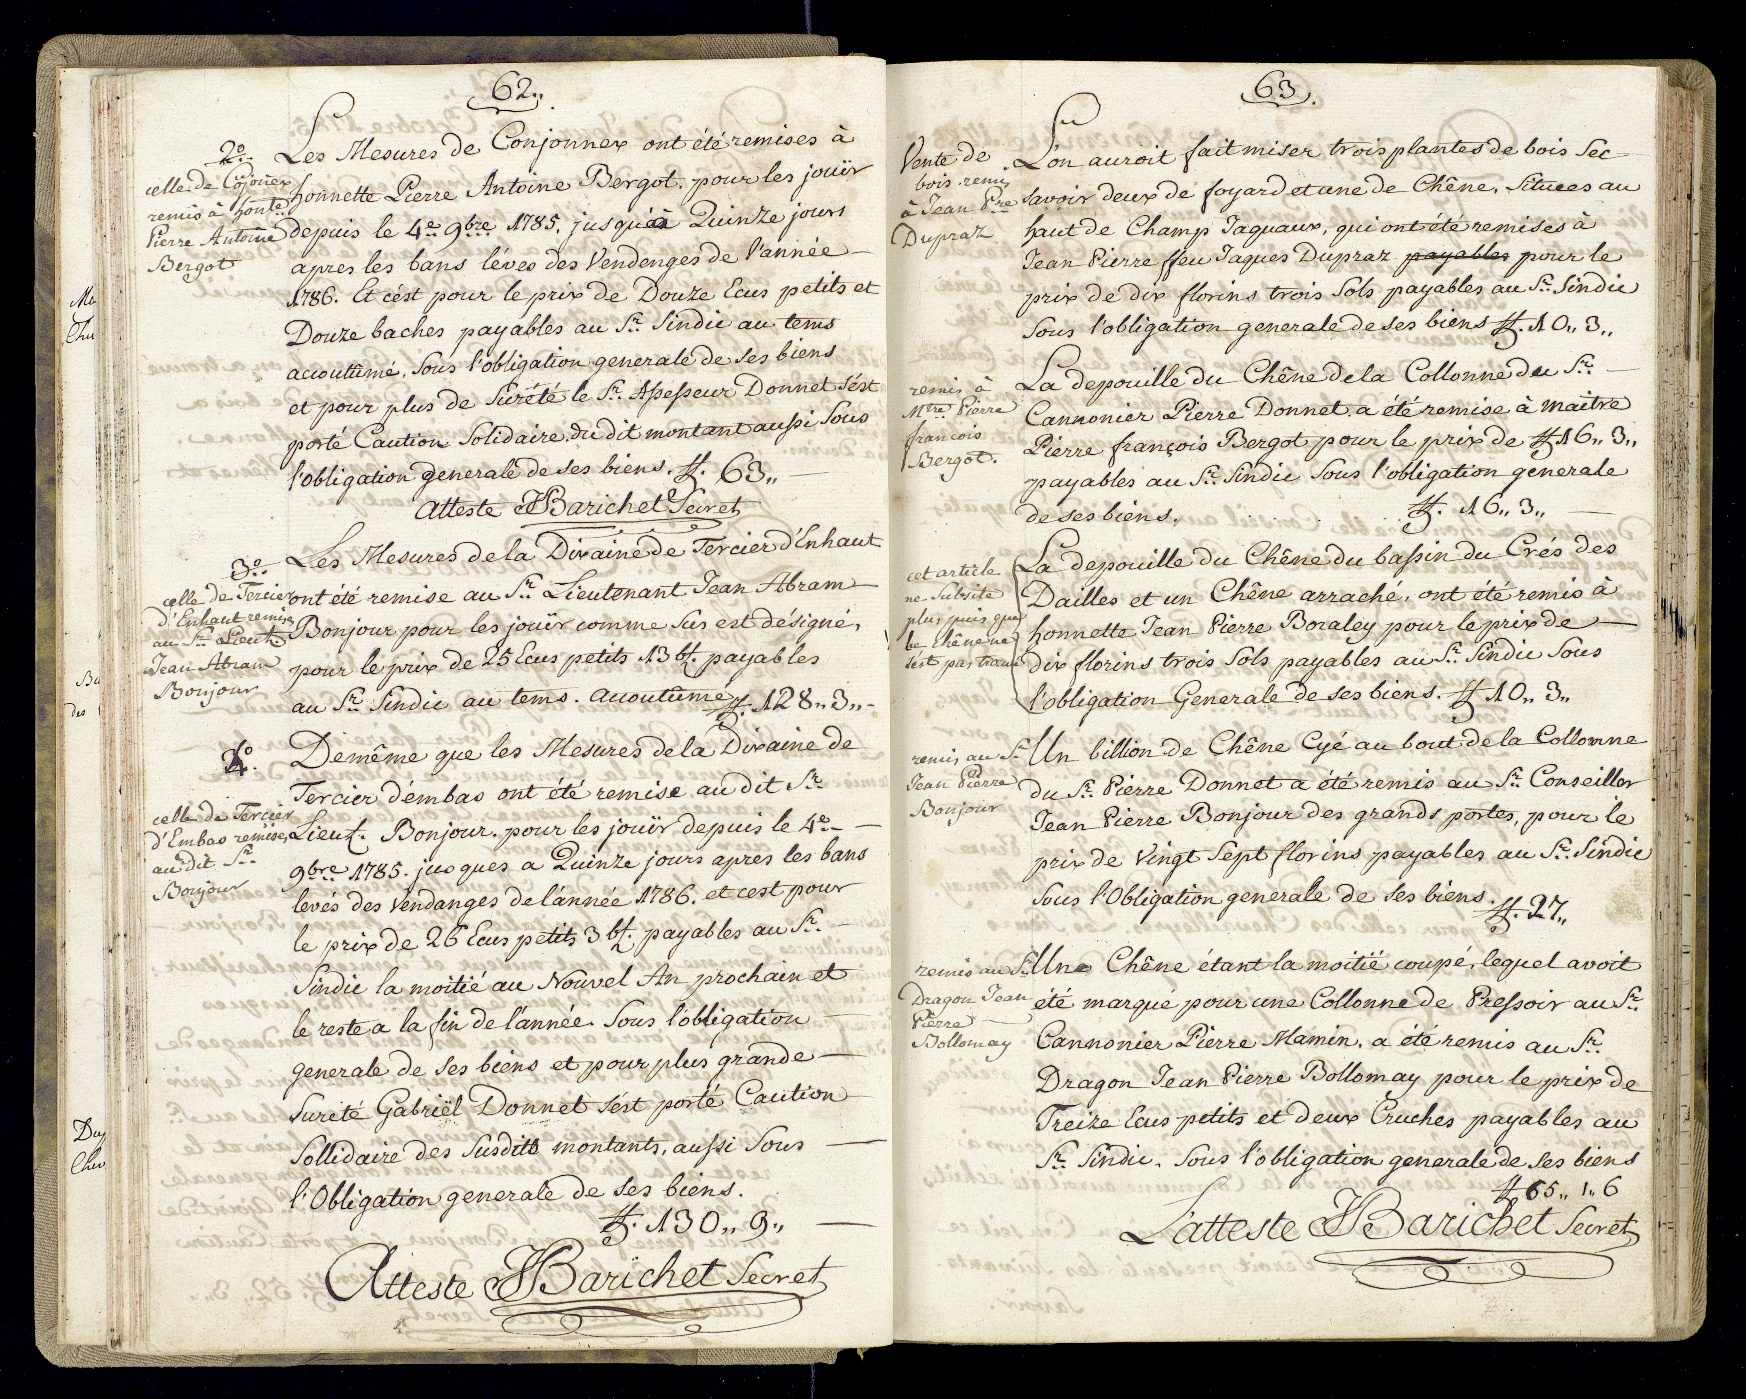 62.
2º
celle de Cojonex
remis à honte
Pierre Antoine
Bergot
Les Mesures de Conjonnex ont été remises à
honnette Pierre Antoine Bergot. pour les jouïr
depuis le 4e 9bre 1785. jusqu'à Quinze jours
apres les bans léves des Vendenges de l'année
1786. Et c'ést pour le prix de Douze Ecus petits et
Douze baches payables au Sr. Sindic au tems
acoutûmé. Sous l'obligation generale de ses biens
et pour plus de Sûrété le Sr. Assesseur Donnet s'ést
porté Caution Solidaire du dit montant aussi Sous
l'obligation generale de ses biens. ff. 63,,
Atteste JJBarichet Secret
3º
celle de Tercier
d'Enhaut remise
au Sr. Lieut.
Jean Abram
Bonjour
Les Mesures de la Dixaine de Tercier d'Enhaut
ont été remise au Sr. Lieutenant Jean Abram
Bonjour pour les jouïr comme Sus est désigné,
pour le prix de 25 Ecus petits 13 bf. payables
au Sr. Sindic au tems. acoutûmé ff. 128,, 3,,
4º.
celle de Tercier
d'Embas remise
au dit Sr.
Bonjour
Demême que les Mesures de la Dixaine de
Tercier d'émbas ont été remise au dit Sr.
Lieut. Bonjour. pour les jouïr depuis le 4e
9bre 1785. jusques a Quinze jours apres les bans
levés des Vendanges de l'année 1786. et cest pour
le prix de 26 Ecus petits 3 bf. payables au Sr.
Sindic la moitié au Nouvel An prochain et
le reste a la fin de l'année. Sous l'obligation
generale de ses biens et pour plus grande
Sureté Gabriël Donnet s'ést porté Caution
Sollidaire des Susdits montants, aussi Sous
l'Obligation generale de ses biens.
ff. 130,, 9,,
Atteste JJBarichet Secret
63.
Vente de
bois remis
à Jean Pre
Dupraz
L'on auroit fait miser trois plantes de bois Sec
savoir deux de foyard et une de Chêne, Situees au
haut de Champ Jaquaux, qui ont été remises à
Jean Pierre ffeu Jaques Dupraz payables pour le
prix de dix florins trois Sols payables au Sr. Sindic
Sous l'obligation generale de ses biens ff. 10,, 3,,
remis à
Mtre Pierre
françois
Bergot.
La depouille du Chêne de la Collonne du Sr.
Cannonier Pierre Donnet a été remise à maître
Pierre françois Bergot pour le prix de ff 16,, 3,,
payables au Sr. Sindic Sous l'obligation generale
de ses biens. ff. 16,, 3,,
cet article
ne Subsite
plus puis que
le Chêne ne
s'est pas trouvé
La depouille du Chêne du bassin du Crés des
Dailles et un Chêne arraché, ont été remis à
honnette Jean Pierre Boraley pour le prix de
dix florins trois Sols payables au Sr. Sindic Sous
l'obligation Generale de ses biens. ff 10,, 3,,
remis au Sr
Jean Pierre
Bonjour
Un billion de Chêne Cyé au bout de la Collonne
du Sr. Pierre Donnet a été remis au Sr. Conseiller
Jean Pierre Bonjour des grands portes, pour le
prix de Vingt Sept florins payables au Sr. Sindic
Sous l'Obligation generale de ses biens.
ff. 27,,
remis au Sr.
Dragon Jean
Pierre
Bollomay
Un Chêne étant la moitié coupé, lequel avoit
été marqué pour une Collonne de Pressoir au Sr.
Cannonier Pierre Mamin, a été remis au Sr.
Dragon Jean Pierre Bollomay pour le prix de
Treize Ecus petits et deux Cruches payables au
Sr. Sindic. Sous l'obligation generale de ses biens
ff 65,, 1,, 6
L'atteste JJBarichet Secret